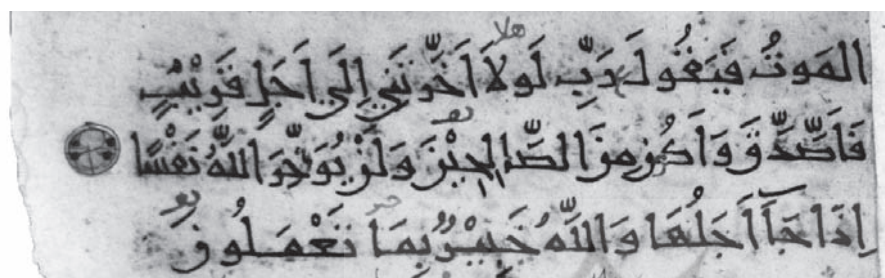 هلا
المَوتُ فَيَقُولَ رَبِّ لَولَا اَخَّرتَنِي اِلَى اَجَلٍ قَرِيْبٍ
فَاَصَّدَّقَ وَاَكُنْ مِنَ الصَّالِحِيْنَ وَلَنْ يُوَخِّرَ اللّٰهُ نَفْسًا
اِذَا جَآ اَجَلُهَا وَاللّٰهُ خَبِيْرٌ بِمَا تَعْمَلُونَ